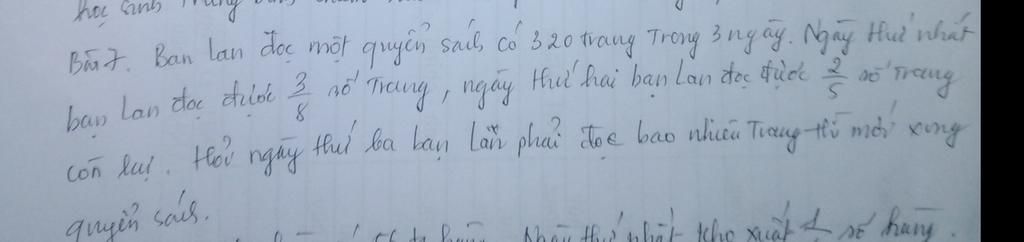 học sinh
Bài 7. Bạn lan đọc một quyển sách có 320 trang Trong 3 ngày. Ngày thứ nhất
bạn Lan đọc được 3/8 số Trang, ngày thứ hai bạn Lan đọc được 2/5 số Trang
còn lại. Hỏi ngày thứ ba bạn Lan phải đọc bao nhiêu Trang thì mới xong
quyển sách.
thứ nhất kho xuất số hàng.